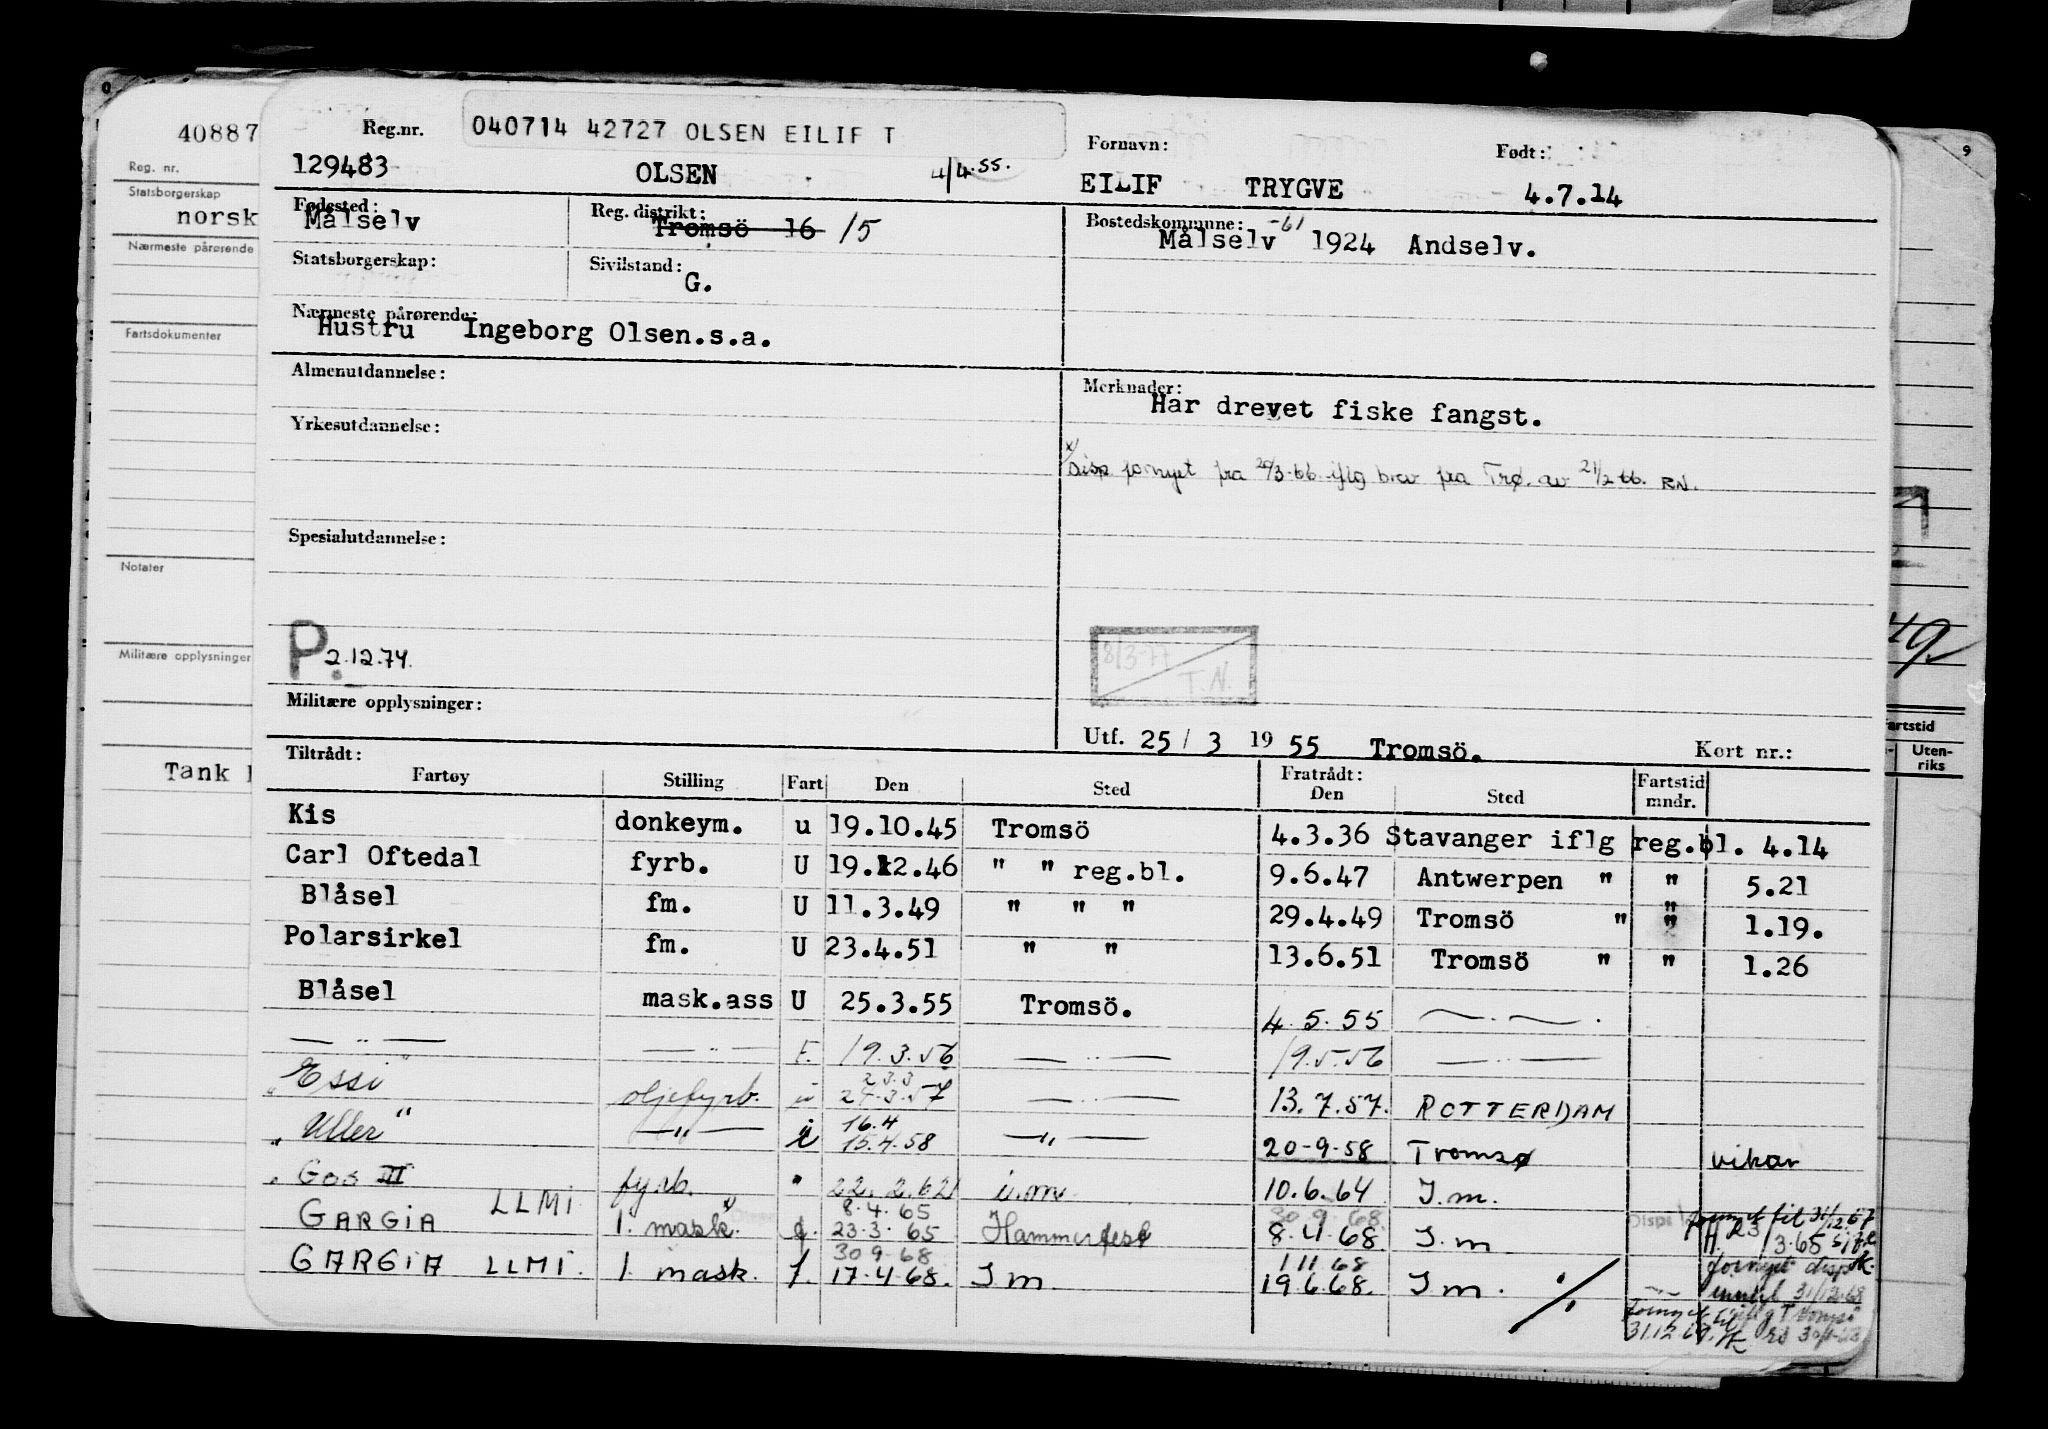 40887
Reg. nr.
Statsborgerskap
norsk
Nærmeste pårørende
Fartsdokumenter
Notater
Militære opplysninger
Tank
Reg.nr. 040714 42727 OLSEN EILIF T
129483 OLSEN 4/4.55.
Fornavn: Født:
EILIF TRYGVE 4.7.14
Fødested: Målselv Reg. distrikt: Tromsö 16 15
Bostedskommune: Målselv -61 1924 Andselv.
Statsborgerskap: Sivilstand: G.
Nærmeste pårørende:
Hustru Ingeborg Olsen.s.a.
Almenutdannelse:
Yrkesutdannelse:
Spesialutdannelse:
P 2.12.74.
Militære opplysninger:
Merknader:
Har drevet fiske fangst.
x) Disp fornyet fra 20/3-66 iflg brev fra Trø. av 21/2 66. RN.
8/3-77
T.N.
Utf. 25/3 1955 Tromsö. Kort nr.:
Tiltrådt: Fratrådt:
Fartøy Stilling Fart Den Sted Den Sted Fartstid mndr.
Kis donkeym. u 19.10.45 Tromsö 4.3.36 Stavanger iflg reg.bl. 4.14
Carl Oftedal fyrb. U 19.12.46 " " reg.bl. 9.6.47 Antwerpen " " 5.21
Blåsel fm. U 11.3.49 " " " 29.4.49 Tromsö " " 1.19.
Polarsirkel fm. U 23.4.51 " " 13.6.51 Tromsö " " 1.26
Blåsel mask.ass U 25.3.55 Tromsö. 4.5.55 — . — .
— " — — " — F. 19.3.56 — " — 19.5.56 — " —
"Essi" oljefyrb. u 23.3 24.3.57 — " — 13.7.57. ROTTERDAM
"Uller" — " — i 16.4 15.4.58 — " — 20-9-58 Tromsø vikar
" Gos III fyrb. " 22.2.62 u.m. 10.6.64 I.m.
GARGIA LLMI 1. mask. f. 8.4.65 23.3.65 Hammerfest 30.9.68. 8.4.68. I.m
GARGIA LLMI. 1. mask. f. 30 9-68 17.4.68. I m. 1 11 68 19.6.68. I m. ./.
fornyet til 31/12.67
fornyet disp
inntil 31/12.68
fornyet til
31.12.69.
49.
Fartstid
Uten-
riks
9